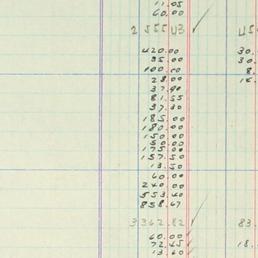 11.05
60.00
2 555 43 ✓ 45
420.00 30.
35.00 30.
100.00 8.
28.00 15.
37.90
81.55
37.30
185.00
180.00
150.00
150.00
157.50
13.50
60.00
2 40.00
553.40
858.67
3362.82 ✓ 83.
60.00
72.45 18.
13.40